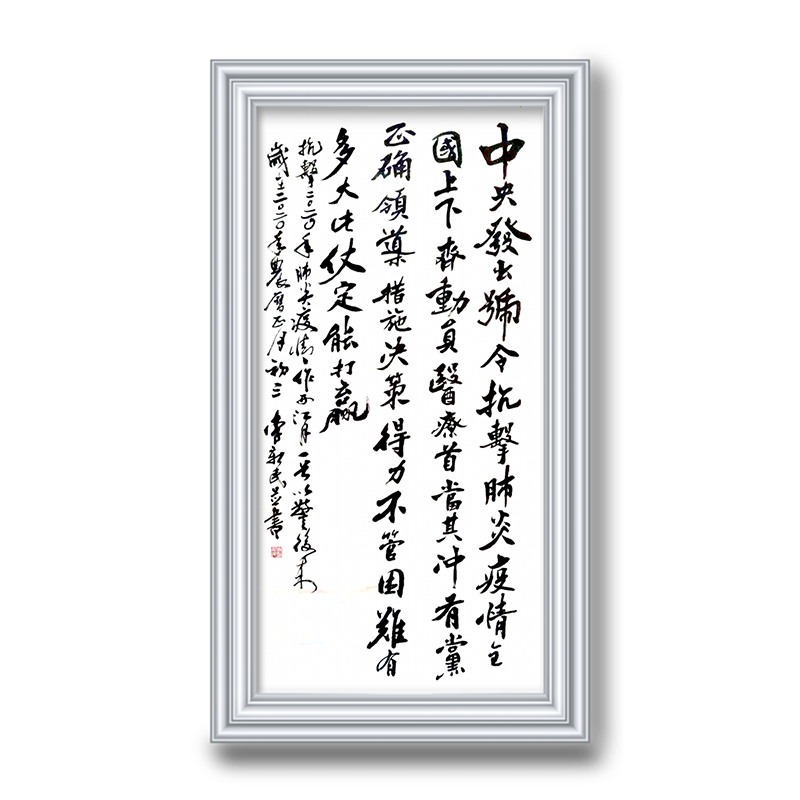 中央發出號令抗擊肺炎疫情全
國上下齊動員醫療首當其冲有黨
正确領導措施决策得力不管困難有
多大此仗定能打赢
抗擊二〇二〇年肺炎疫情作西江月一首以警後来
歲在二〇二〇年農曆正月初三新民并書